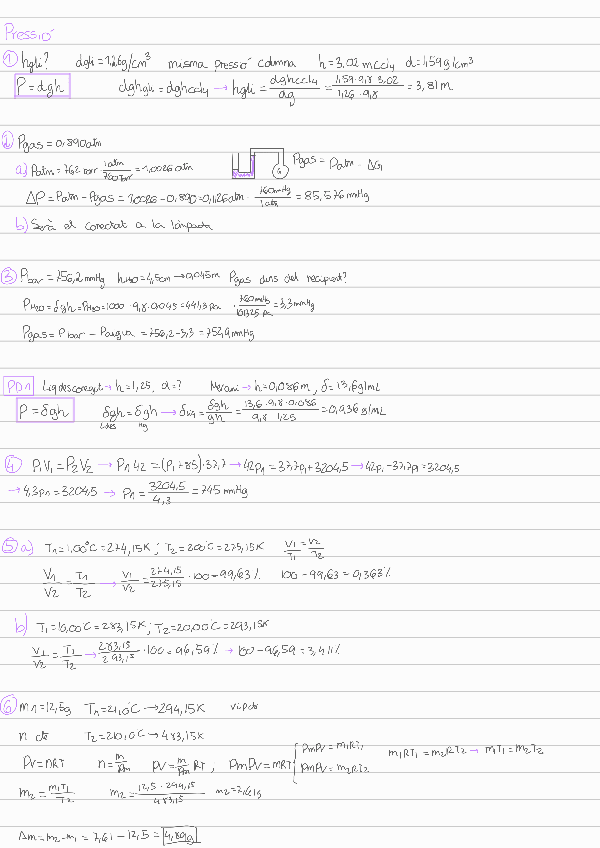 Pressió
① hgli? dgli = 1,26g/cm³ misma pressió columna h = 3,02 m ccl4 d = 1,59g/cm³
P = dgh dghgli = dghccl4 → hgli = dghccl4/dg = 1,59·9,8·3,02/1,26·9,8 = 3,81m
② Pgas = 0,890atm
a) Patm = 762 torr 1atm/760torr = 1,0026 atm Pgas = Patm - ΔG
ΔP = Patm - Pgas = 1,0026 - 0,890 = 0,1126atm · 760mmHg/1atm = 85,576 mmHg
b) Serà el conectat a la làmpada
③ Pbar = 756,2 mmHg hH2O = 4,5cm → 0,045m Pgas dins del recipient?
PH2O = δgh = PH2O = 1000 · 9,8 · 0,045 = 441,3 pa · 760mmHg/101325 pa = 3,3 mmHg
Pgas = Pbar - Paigua = 756,2 - 3,3 = 752,9 mmHg
PD1 Liq desconegut → h = 1,25, d = ? Mercuri → h = 0,086m, δ = 13,6g/mL
P = δgh δgh = δgh → = δgh/gh = 13,6·9,8·0,086/9,8·1,25 = 0,936 g/mL
Ldes Hg
④ P1V1 = P2V2 → P1·42 = (P1+85)·37,7 → 42p1 = 37,7p1 + 3204,5 → 42p1 - 37,7p1 = 3204,5
→ 4,3p1 = 3204,5 → P1 = 3204,5/4,3 = 745 mmHg
⑤ a) T1 = 1,00°C = 274,15K ; T2 = 2,00°C = 275,15K V1/T1 = V2/T2
V1/V2 = T1/T2 → V1/V2 = 274,15/275,15 · 100 = 99,63% 100 - 99,63 = 0,363%
b) T1 = 10,00°C = 283,15K ; T2 = 20,00°C = 293,15K
V1/V2 = T1/T2 → 283,15/293,15 · 100 = 96,59% → 100 - 96,59 = 3,41%
⑥ m1 = 12,5g T1 = 21,0°C → 294,15K v i p cts
n cts T2 = 210,0°C → 483,15K
PV = nRT n = m/Pm PV = m/Pm RT , PmPV = mRT { PmPV = m1RT1 m1RT1 = m2RT2 → m1T1 = m2T2
PmPV = m2RT2
m2 = m1T1/T2 m2 = 12,5·294,15/483,15 m2 = 7,61g
Δm = m2 - m1 = 7,61 - 12,5 = 4,89g